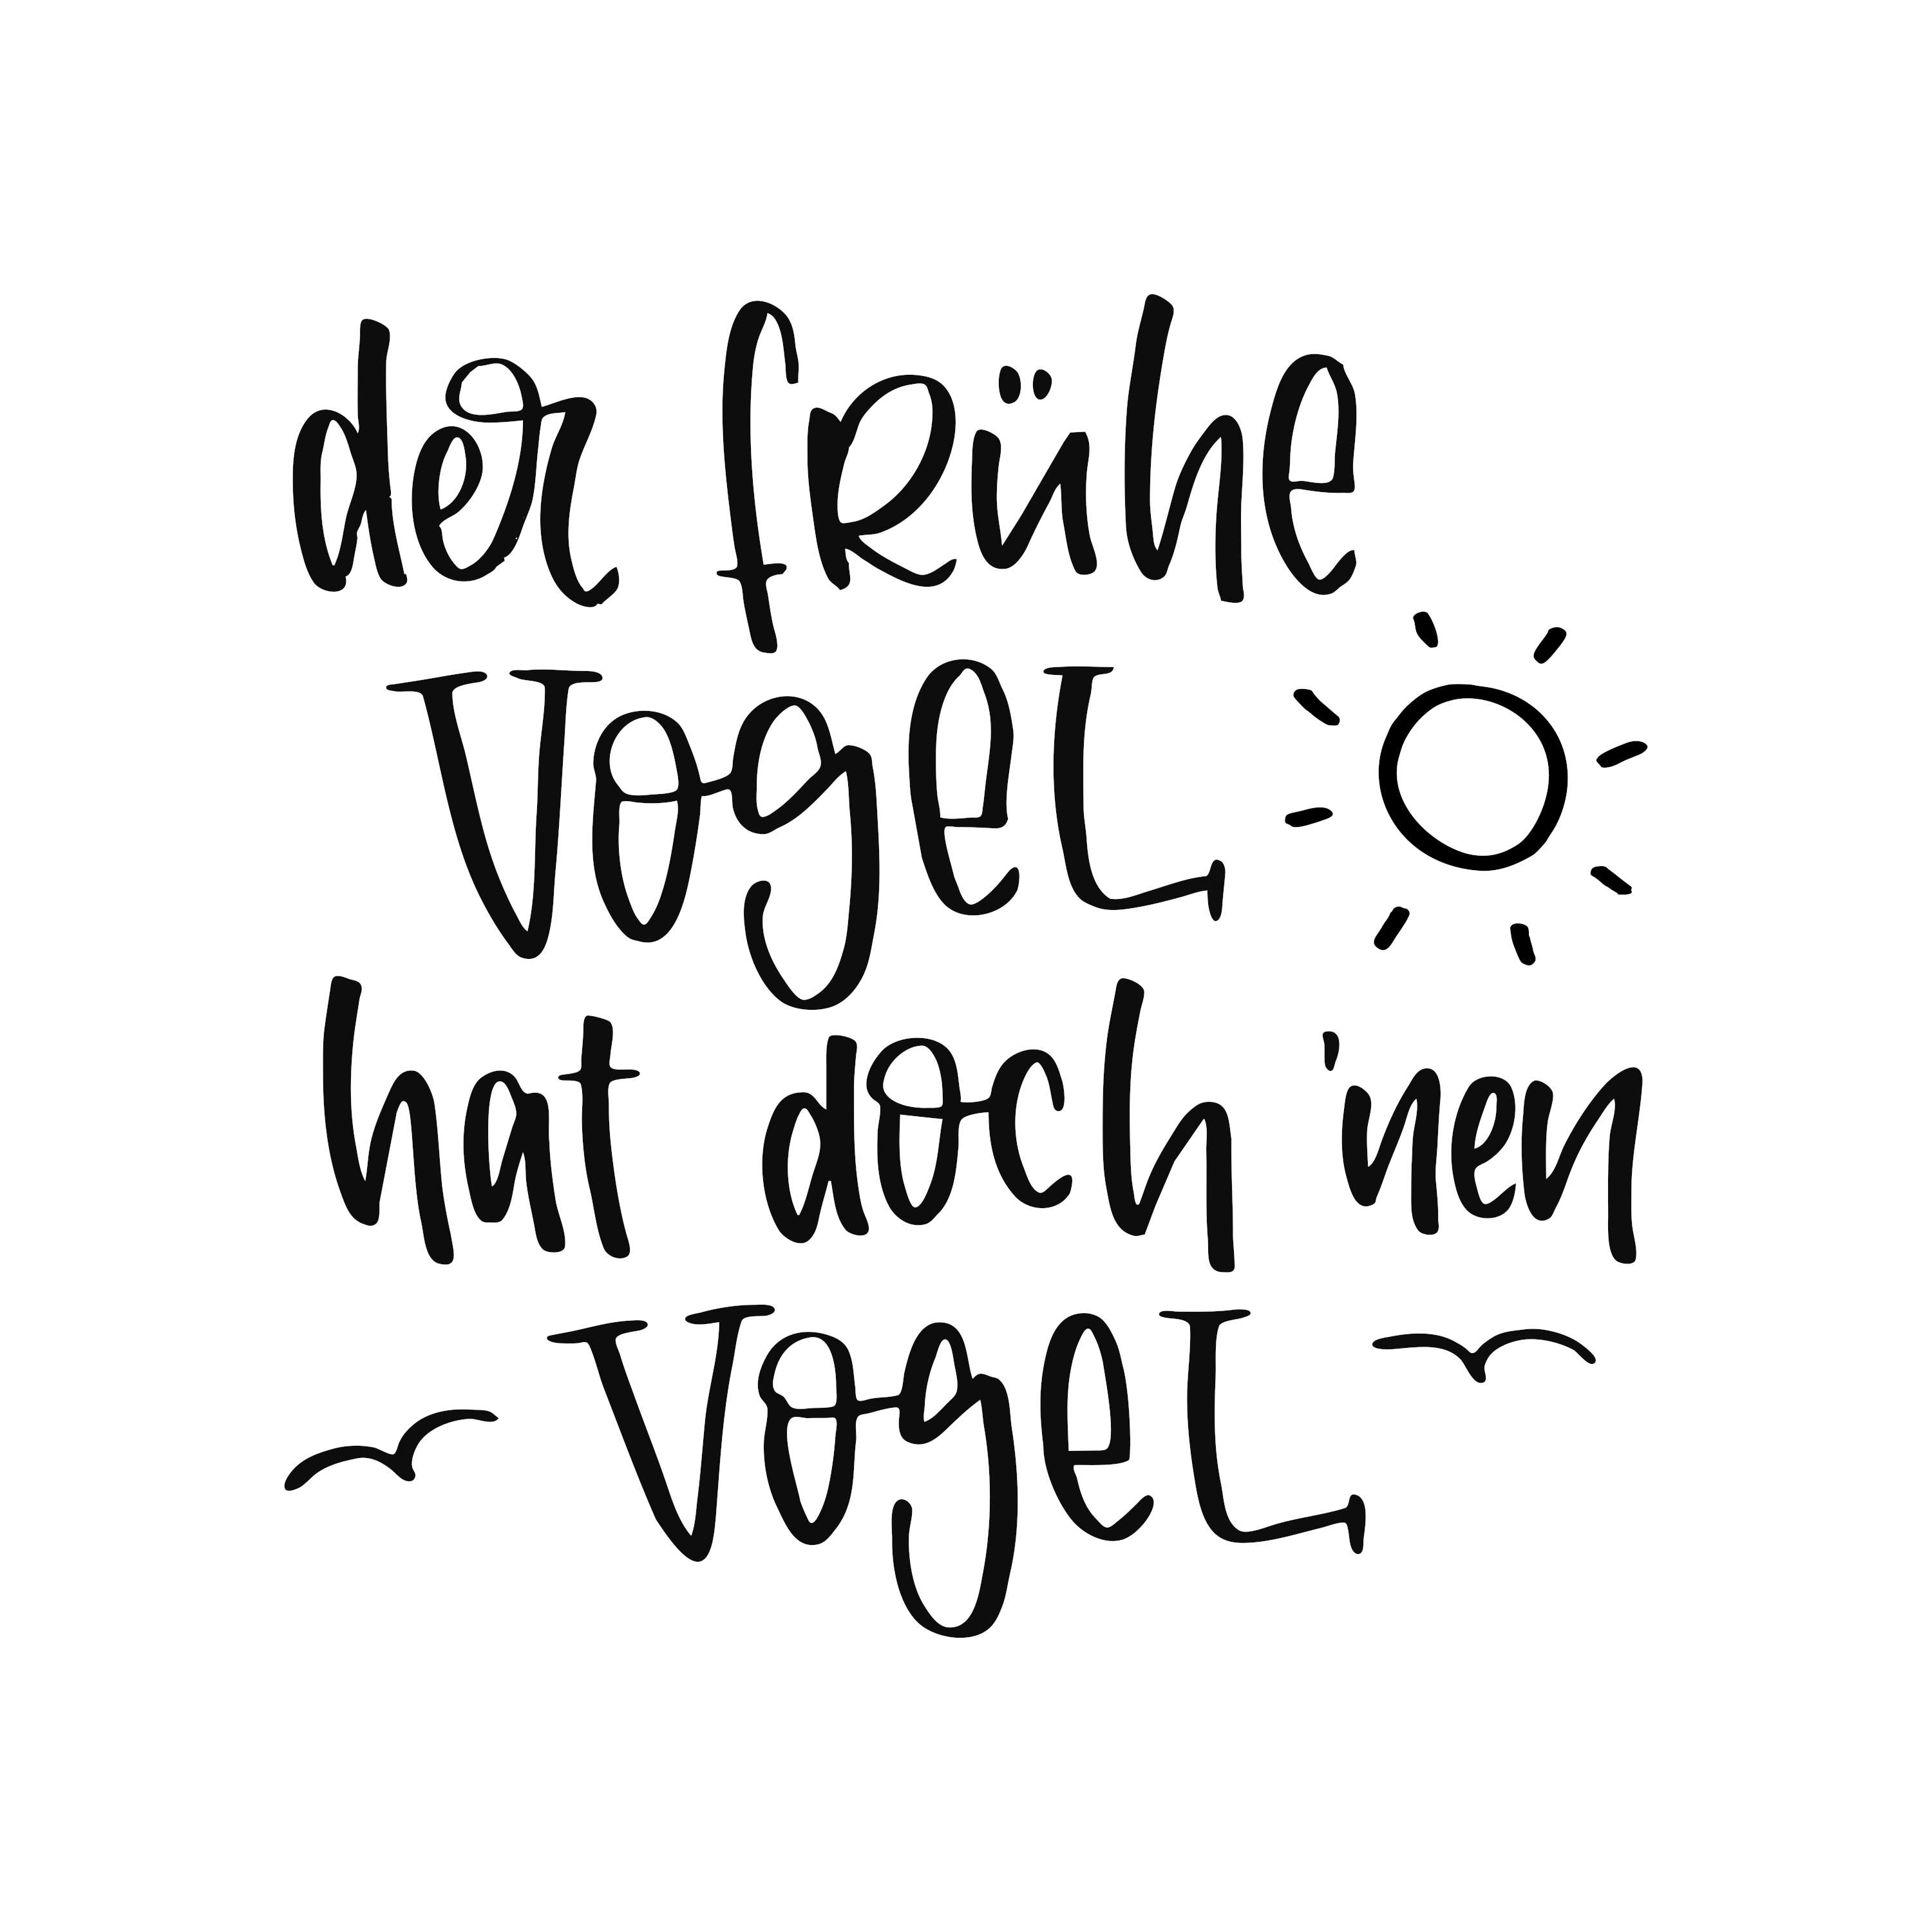 der frühe
Vogel
hat doch 'nen
Vogel